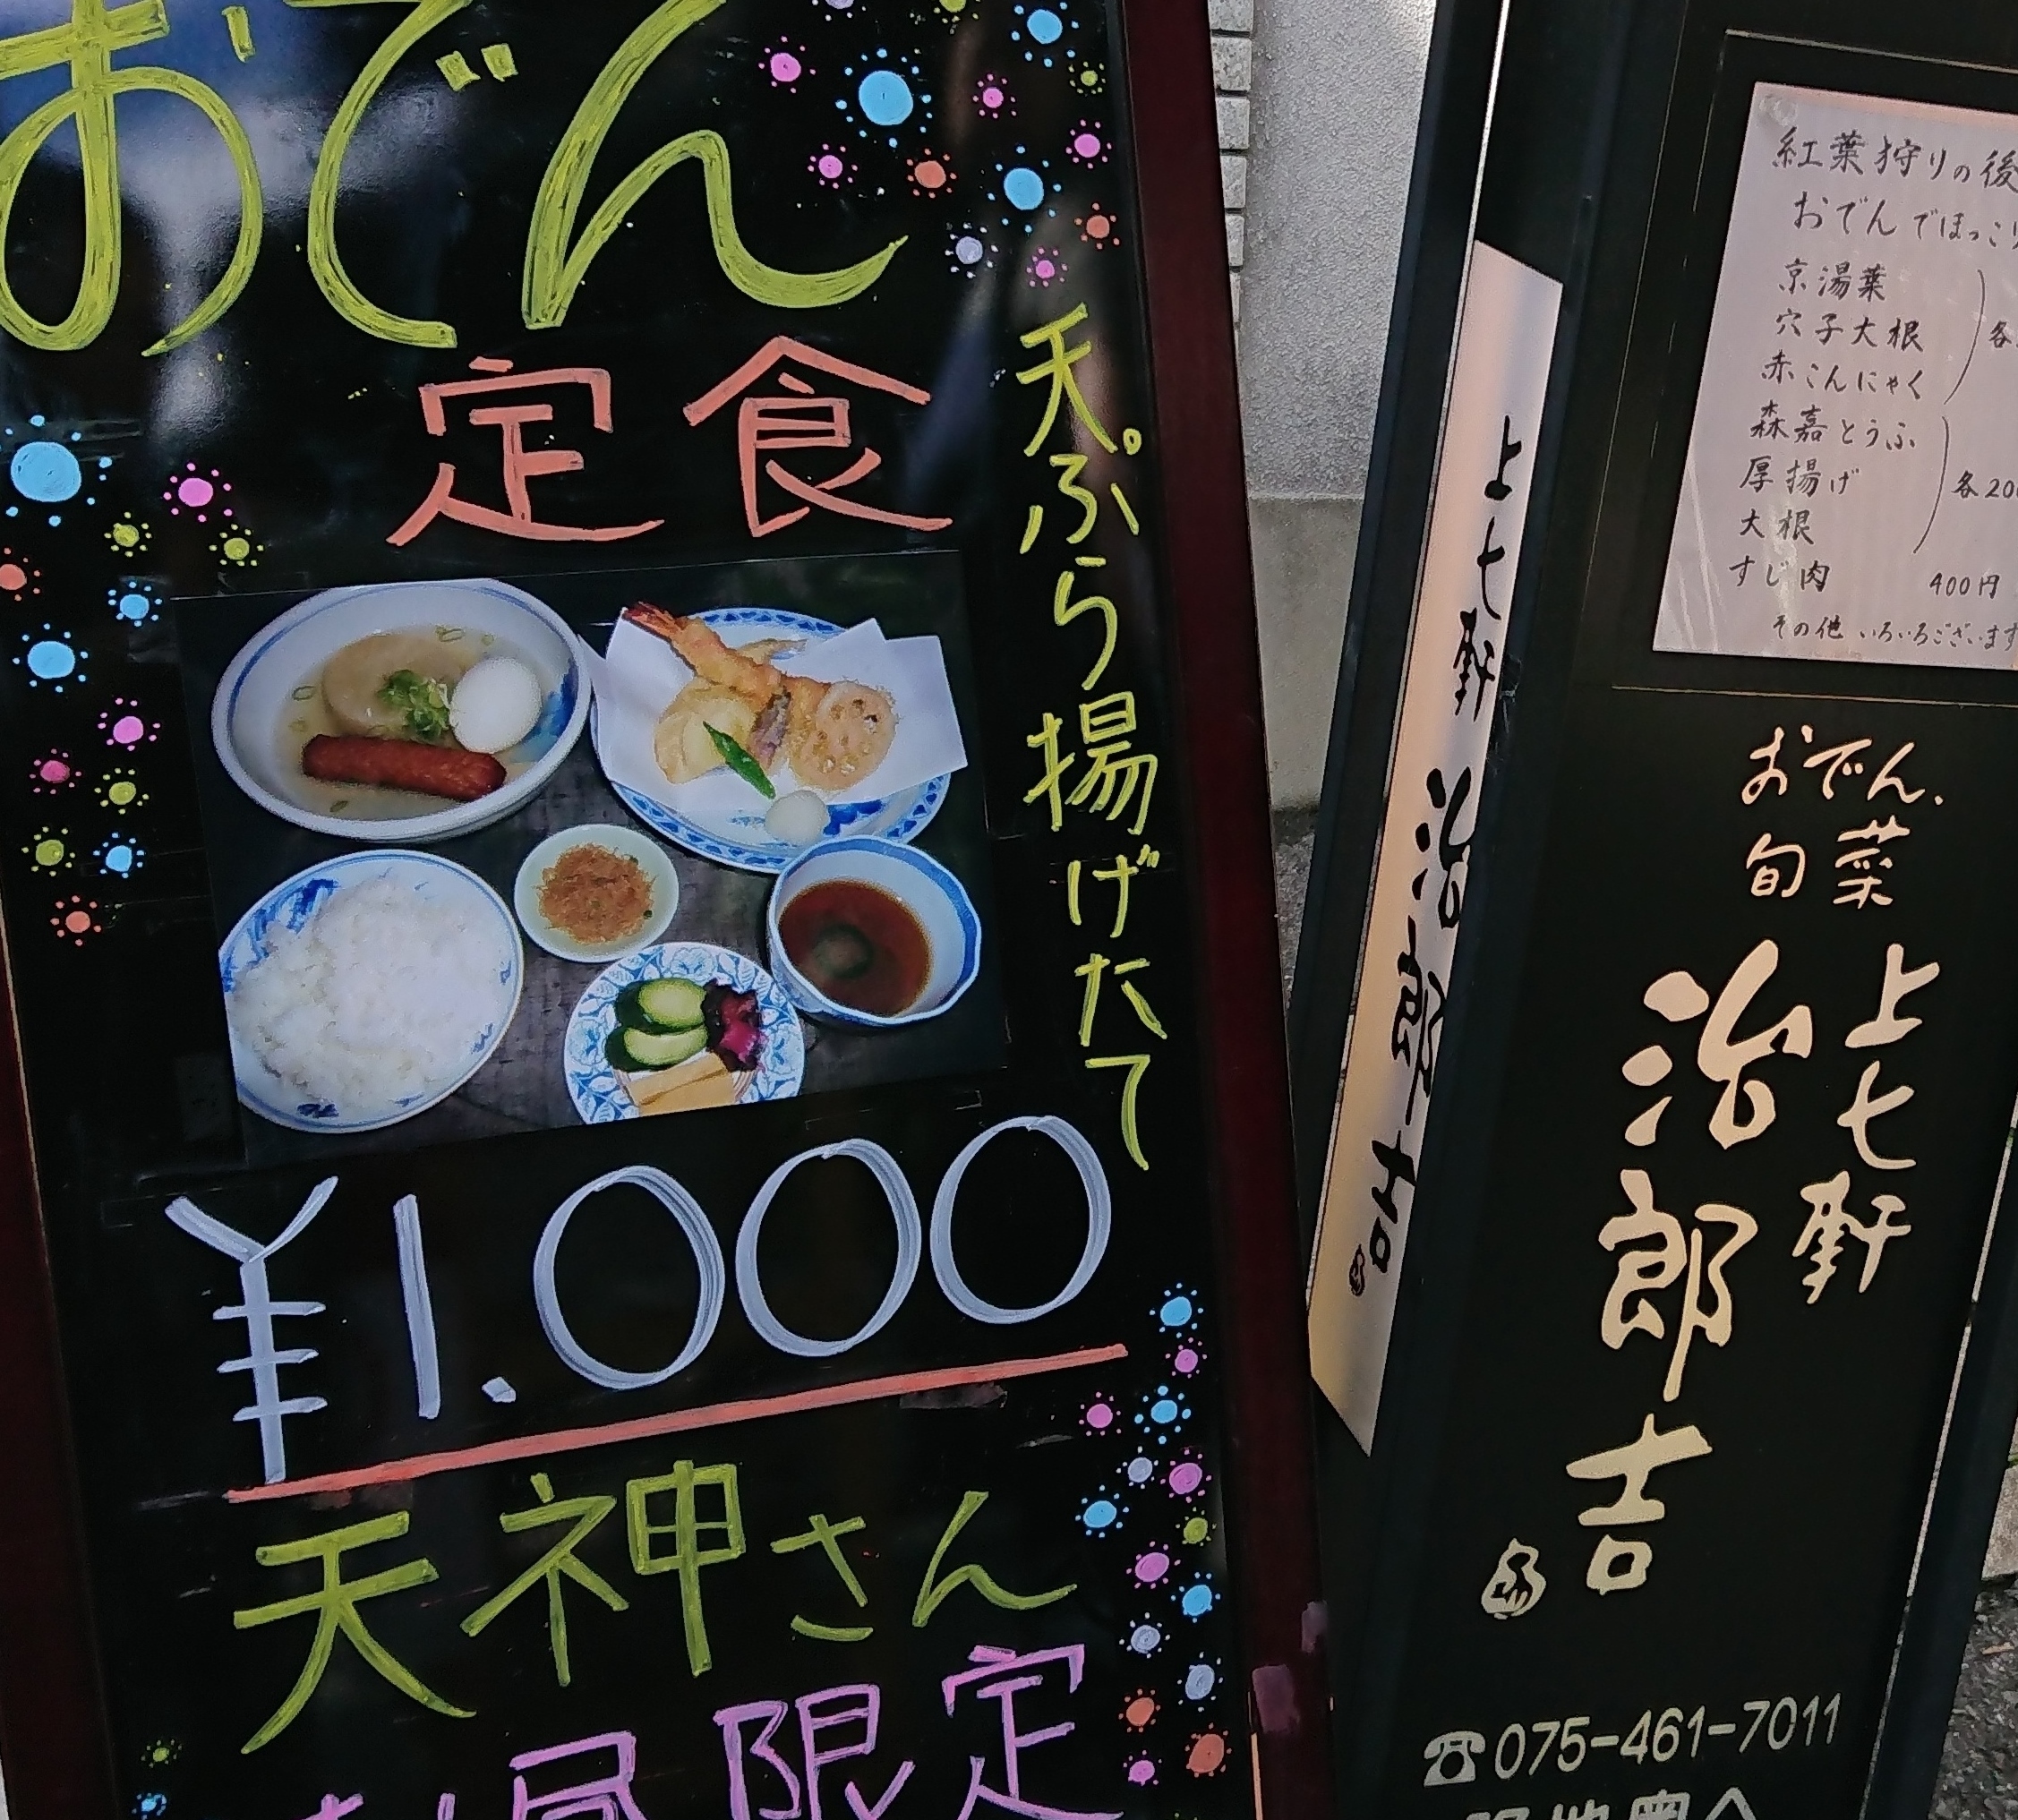 おでん
定食
天ぷら揚げたて
¥1.000
天神さん
お昼限定
上七軒 治郎吉
紅葉狩りの後
おでんでほっこり
京湯葉
穴子大根
赤こんにゃく
各
森嘉とうふ
厚揚げ
大根
各200
すじ肉 400円
その他 いろいろございます
おでん.
旬菜
上七軒
治郎吉
☎075-461-7011